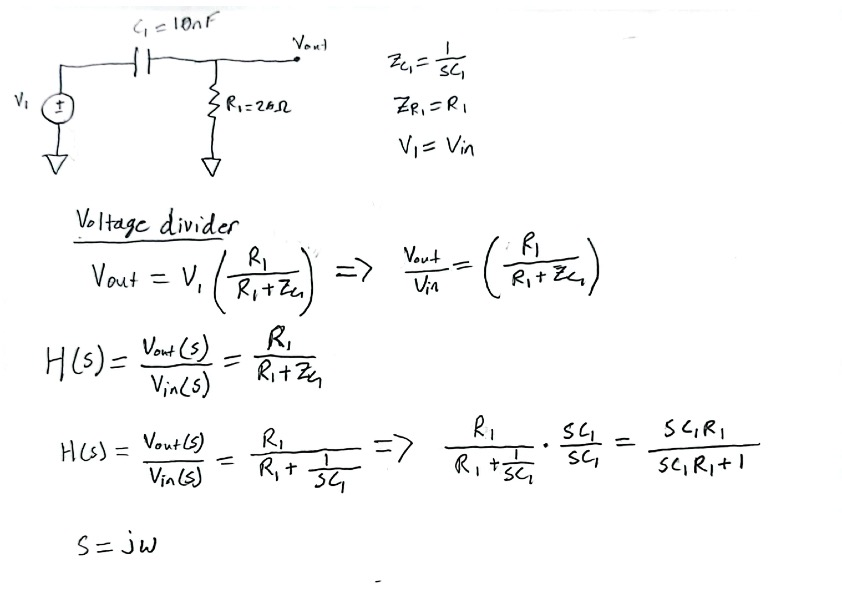 C₁ = 10nF
Vout
V₁
±
Z_C₁ = 1/SC₁
Z_R₁ = R₁
V₁ = Vin
Voltage divider
Vout = V₁ (R₁/(R₁ + Z_C₁)) => Vout/Vin = (R₁/(R₁ + Z_C₁))
H(s) = Vout(s)/Vin(s) = R₁/(R₁ + Z_C₁)
H(s) = Vout(s)/Vin(s) = R₁/(R₁ + 1/SC₁) => R₁/(R₁ + 1/SC₁) · SC₁/SC₁ = SC₁R₁/(SC₁R₁ + 1)
S = jω